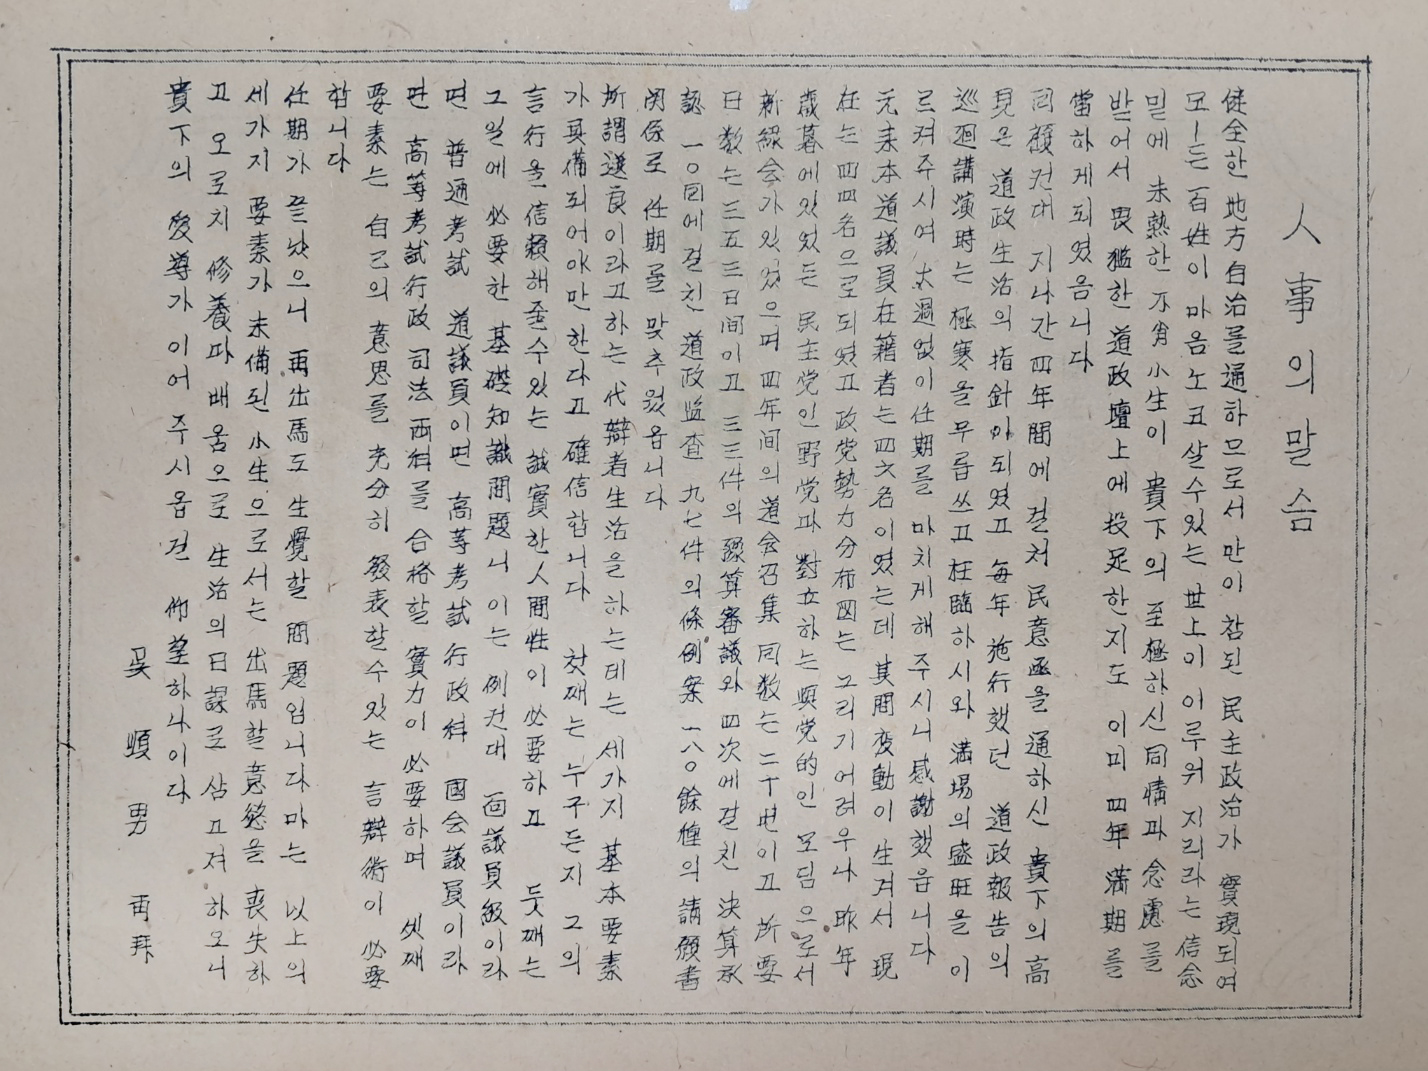 人事의 말슴
健全한 地方自治를 通하므로서 만이 참된 民主政治가 實現되여
모ㅡ든 百姓이 마음노코 살수있는 世上이 이루워 지리라는 信念
밑에 未熟한 不肖 小生이 貴下의 至極하신 同情과 念慮를
받어서 畏濫한 道政壇上에 投足한지도 이미 四年 滿期를
當하게되였음니다
回顧컨대 지나간 四年間에 걸처 民意函을 通하신 貴下의 高
見은 道政生活의 指針이되였고 每年 施行했던 道政報告의
巡廻講演時는 極寒을무릅쓰고 枉臨하시와 滿場의 盛旺을 이
르켜주시여 大過없이 任期를 마치게해 주시니 感謝했읍니다
元来本道議員在籍者는 四六名이였는데 其間変動이 生겨서 現
在는 四四名으로되였고 政党勢力分布図는 그리기어려우나 昨年
歲暮에있었든 民主党인 野党과 對立하는 與党的인 모딤으로서
新綠会가있었으며 四年间의 道会召集 回数는 二十회이고 所要
日数는 三五三日间이고 三三件의 豫算審議와 四次에걸친 決算承
認 一〇回에걸친 道政監査 九七件의 條例案 一八〇餘種의 請願書
関係로 任期를 맞추웠읍니다
所謂選良이라고하는 代辯者生活을 하는데는 세가지 基本要素
가 具備되어야만한다고 確信합니다 첫째는 누구든지 그의
言行을 信賴해줄수있는 誠實한人間性이 必要하고 둣째는
그일에 必要한 基礎知識問題니 이는 例컨대 面議員級이라
면 普通考試 道議員이면 高等考試行政科 国会議員이라
면 高等考試行政司法両科를 合格할 實力이 必要하며 셋째
要素는 自己의 意思를 充分히 發表할수있는 言辯術이 必要
합니다
任期가 끝났으니 再出馬도 生覺할 問題입니다마는 以上의
세가지 要素가 未備된 小生으로서는 出馬할 意慾을 喪失하
고 오로지 修養과 배움으로 生活의日課로 삼고저 하오니
貴下의 愛導가 이어 주시옵건 仰望하나이다
吳 順 男 再拜